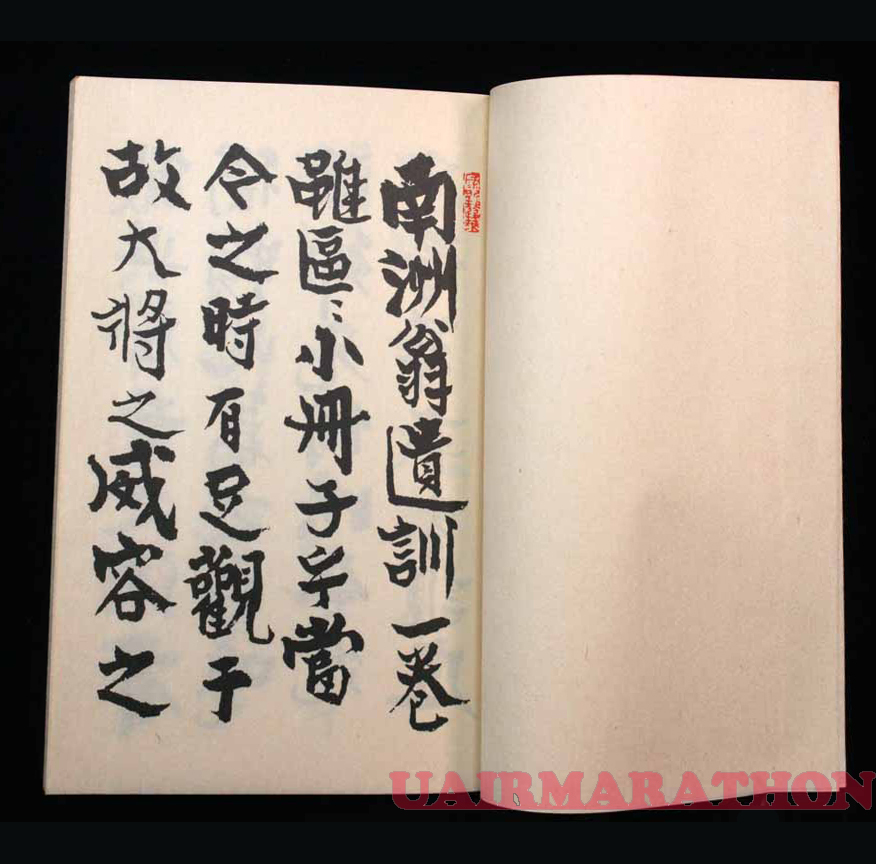 南洲翁遺訓一巻
雖區〻小冊子乎當
今之時有足觀于
故大将之威容之
UAIRMARATHON